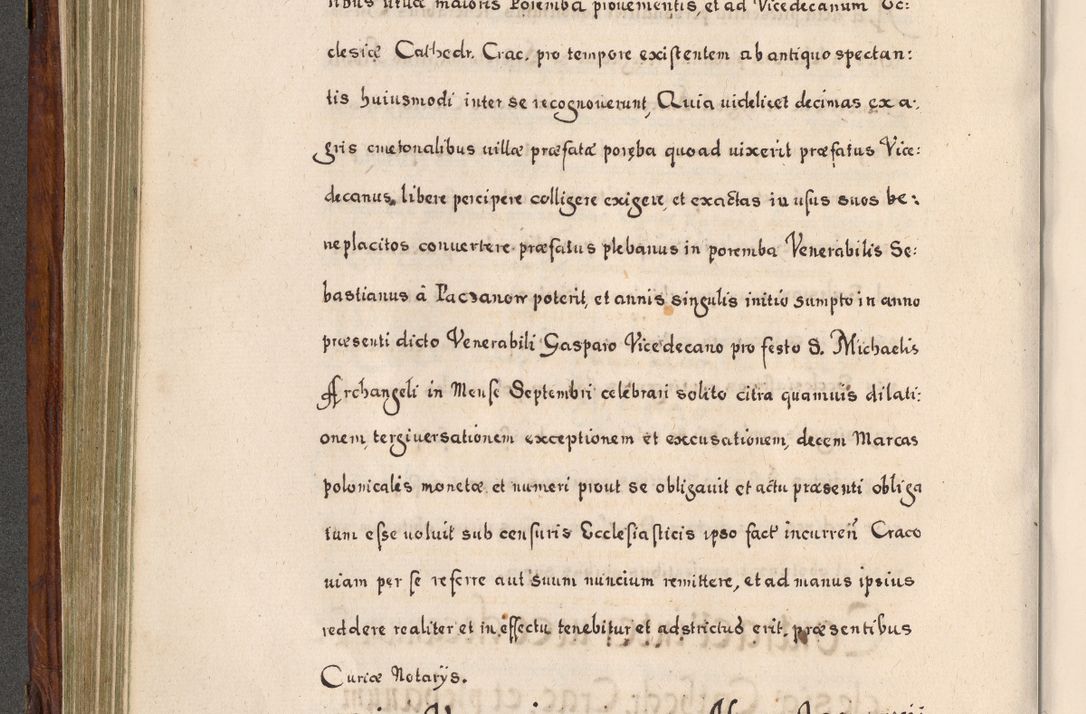 villæ maioris Poremba prouementis, et ad Vicedecanum Ec:
clesiæ Cathedr. Crac. pro tempore existentem ab antiquo spectan:
tis huiusmodi inter se recognouerunt, Quia uidelicet decimas ex a:
gris cmetonalibus uillæ præfatæ poręba quoad uixerit præfatus Vice:
decanus, libere percipere colligere exigere, et exactas in usus suos be:
neplacitos conuertere. præfatus plebanus in poremba Venerabilis Se:
bastianus â Paczanow poterit, et annis singulis initio sumpto in anno
præsenti dicto Venerabili Gasparo Vicedecano pro festo S. Michaelis
Archangeli in Mense Septembri celebrari solito citra quamuis dilati:
onem, tergiuersationem exceptionem et excusationem, decem Marcas
polonicales monetæ et numeri prout se obligauit et actu præsenti obliga
tum esse uoluit sub censuris Ecclesiasticis ipso fact incurreñ Craco
uiam per se referre aut suum nuncium remittere, et ad manus ipsius
reddere realiter et in effectu tenebitur et adstrictus erit, præsentibus
Curiæ Notarÿs.